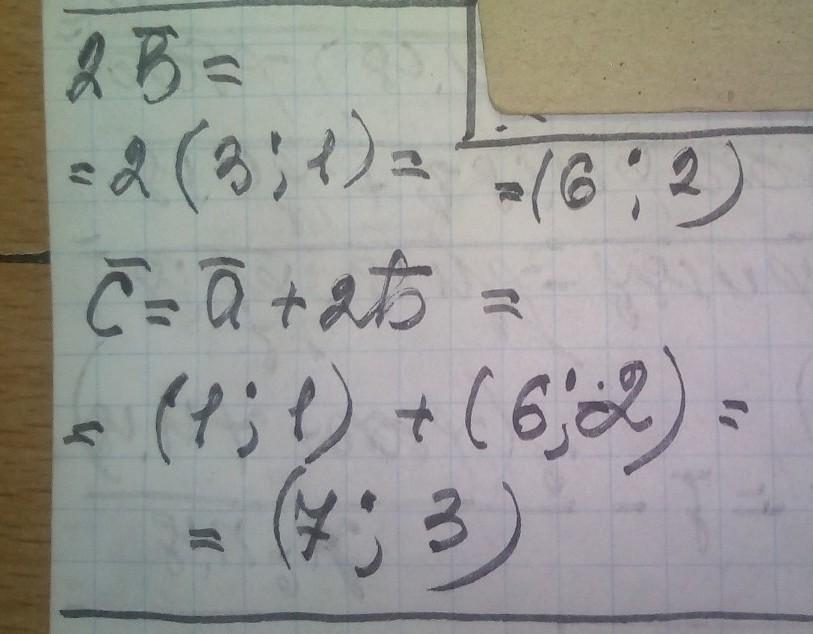 2b̅ =
= 2(3; 1) = =(6; 2)
c̅ = a̅ + 2b̅ =
= (1; 1) + (6; 2) =
= (7; 3)